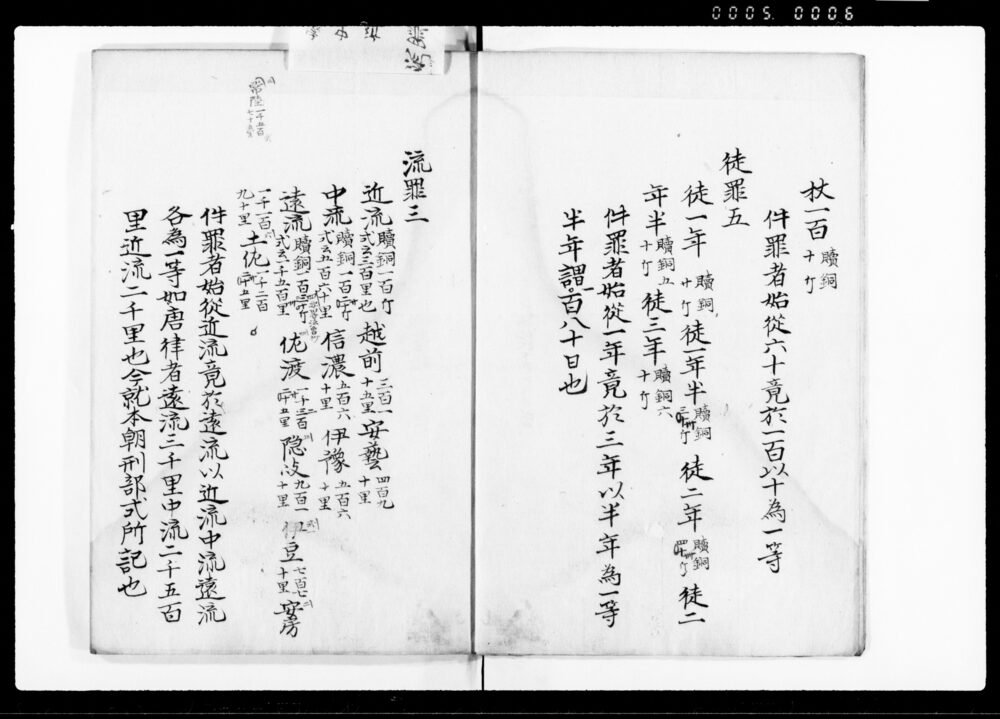 0005. 0006
杖一百 贖銅十斤
件罪者始從六十竟於一百以十為一等
徒罪五
徒一年 贖銅廿斤 徒一年半 贖銅三十斤 徒二年 贖銅四十斤 徒二
年半 贖銅五十斤 徒三年 贖銅六十斤
件罪者始從一年竟於三年以半年為一等
半年謂一百八十日也
流罪三
近流 贖銅一百斤 式云三百里也 越前 三百一十五里 安藝 四百九十里
中流 贖銅一百廿斤 式云五百六十里 信濃 五百六十里 伊豫 五百六十里
遠流 贖銅一百 式云千五百里 佐渡 一千三百廿五里 隠岐 九百一十里 伊豆 七百七十里 安房
一千一百九十里 土佐 一千二百廿五里
常陸 一千五百七十五里
件罪者始從近流竟於遠流以近流中流遠流
各為一等如唐律者遠流三千里中流二千五百
里近流二千里也今就本朝刑部式所記也